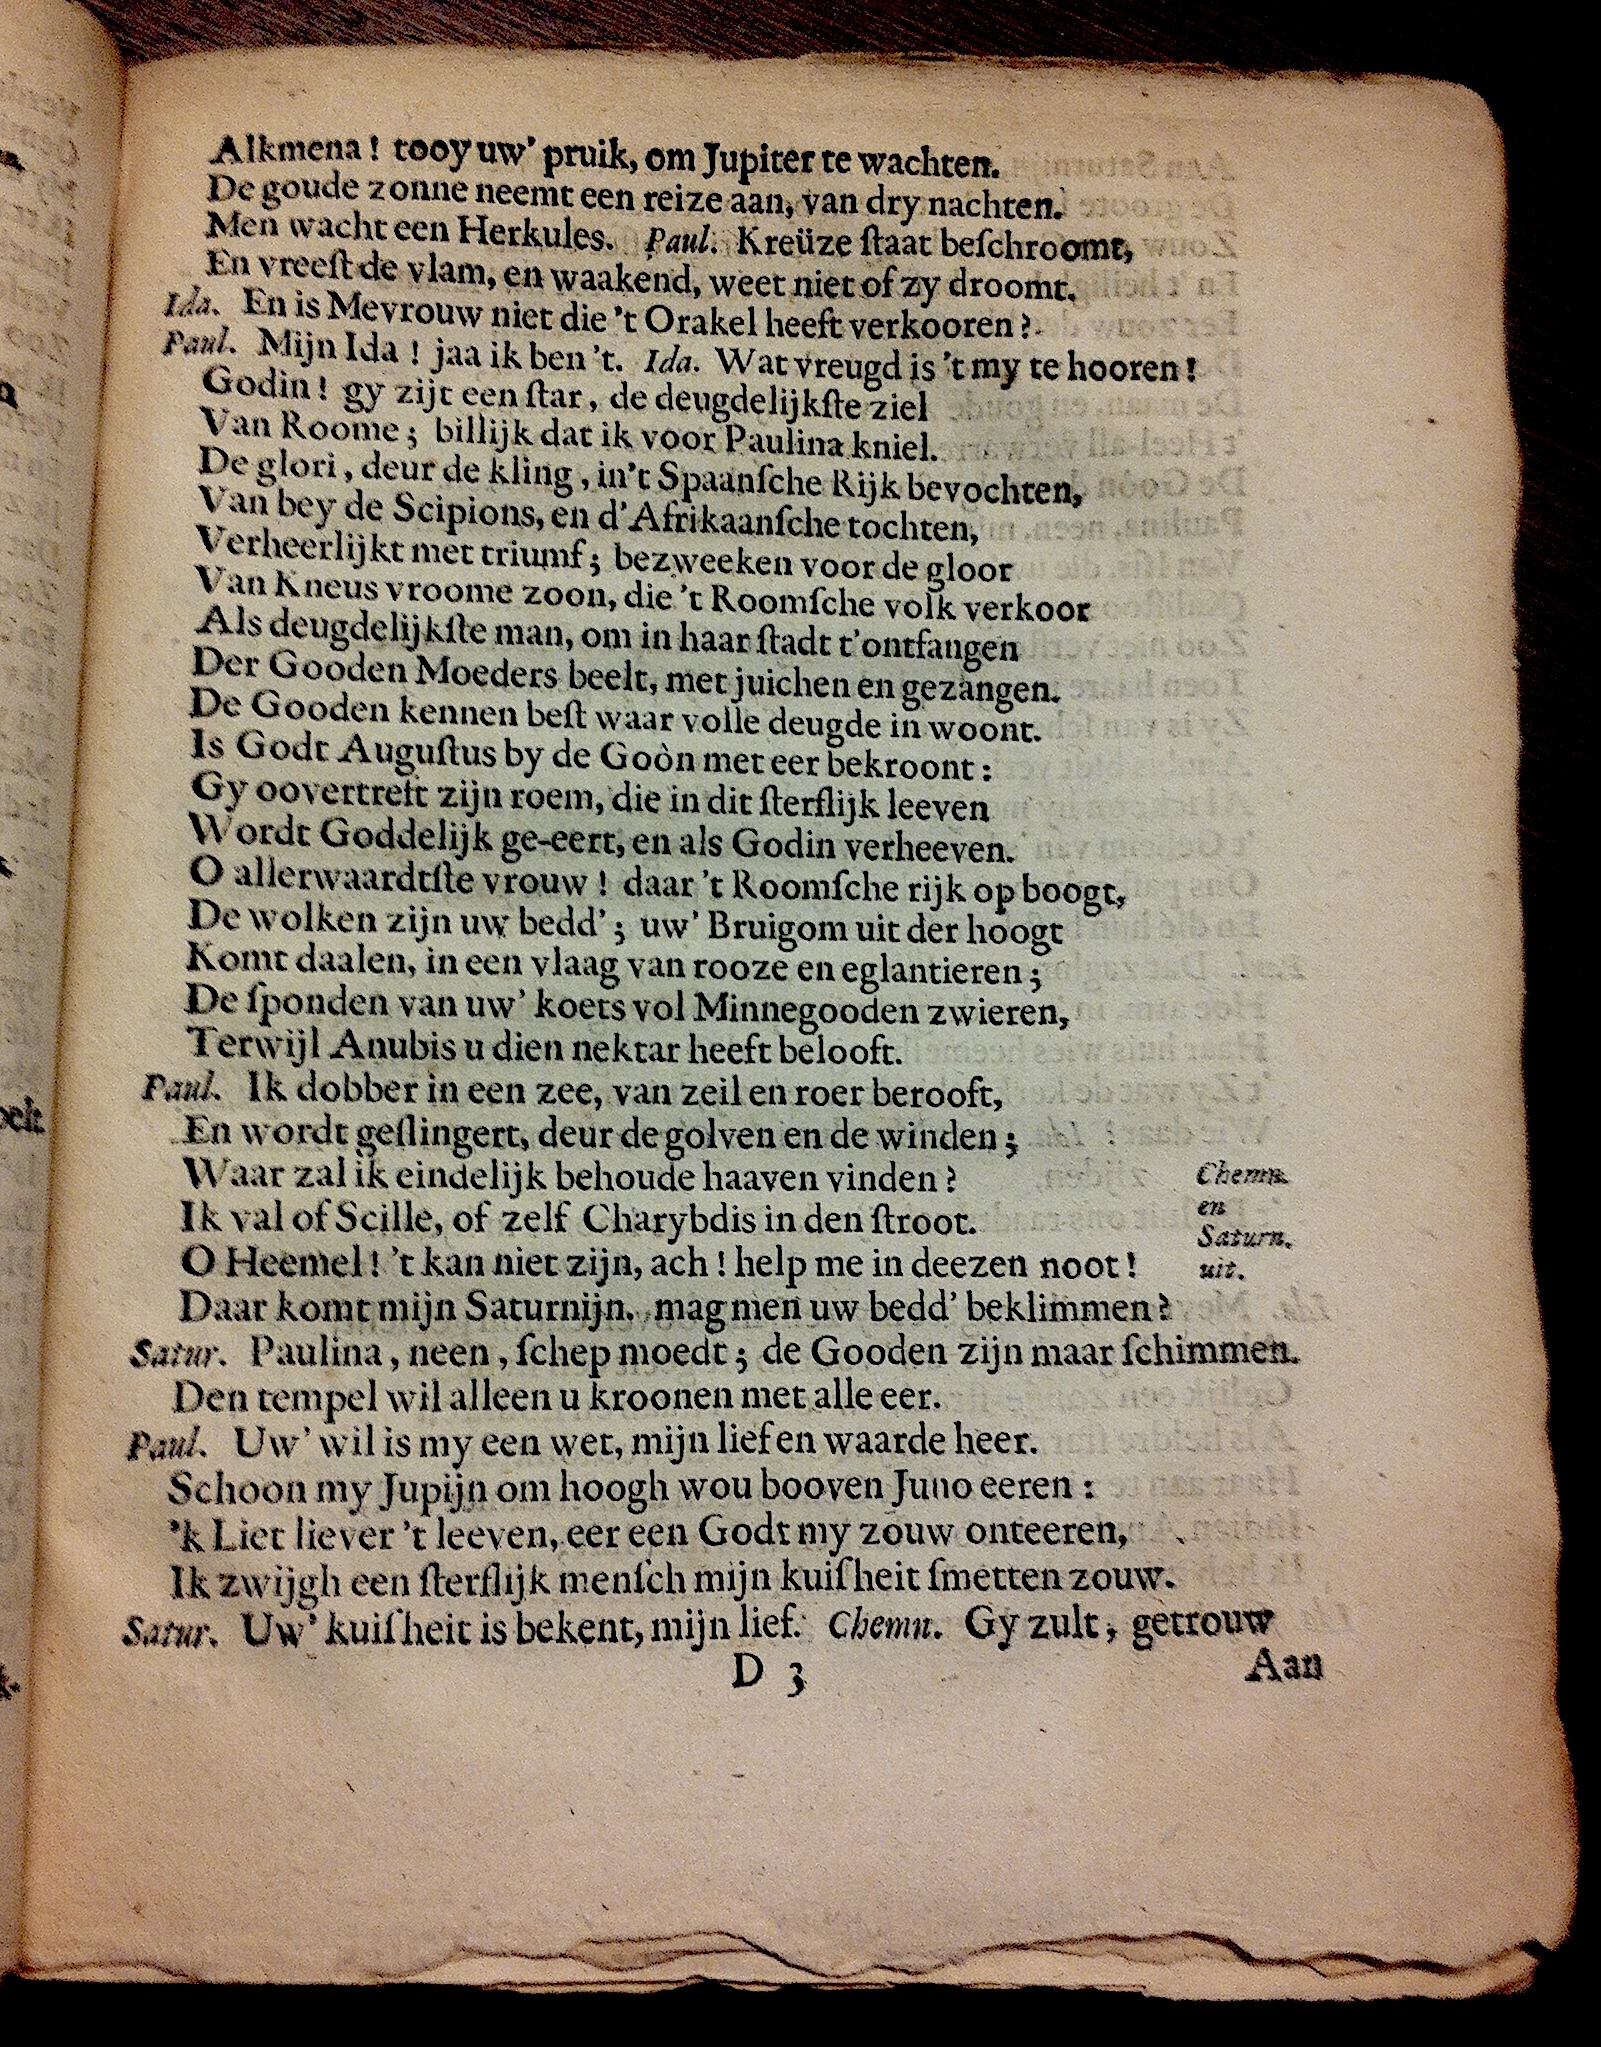 Alkmena! tooy uw' pruik, om Jupiter te wachten.
De goude zonne neemt een reize aan, van dry nachten.
Men wacht een Herkules. Paul. Kreüze ſtaat beſchroomt,
En vreeſt de vlam, en waakend, weet niet of zy droomt.
Ida. En is Mevrouw niet die 't Orakel heeft verkooren?
Paul. Mijn Ida! jaa ik ben 't. Ida. Wat vreugd is 't my te hooren!
Godin! gy zijt een ſtar, de deugdelijkſte ziel
Van Roome; billijk dat ik voor Paulina kniel.
De glori, deur de kling, in't Spaanſche Rijk bevochten,
Van bey de Scipions, en d'Afrikaanſche tochten,
Verheerlijkt met triumf; bezweeken voor de gloor
Van Kneus vroome zoon, die 't Roomſche volk verkoor
Als deugdelijkſte man, om in haar ſtadt t'ontfangen
Der Gooden Moeders beelt, met juichen en gezangen.
De Gooden kennen beſt waar volle deugde in woont.
Is Godt Auguſtus by de Goòn met eer bekroont:
Gy oovertreft zijn roem, die in dit ſterflijk leeven
Wordt Goddelijk ge-eert, en als Godin verheeven.
O allerwaardtſte vrouw! daar 't Roomſche rijk op boogt,
De wolken zijn uw bedd'; uw' Bruigom uit der hoogt
Komt daalen, in een vlaag van rooze en eglantieren;
De ſponden van uw' koets vol Minnegooden zwieren,
Terwijl Anubis u dien nektar heeft belooft.
Paul. Ik dobber in een zee, van zeil en roer berooft,
En wordt geſlingert, deur de golven en de winden;
Waar zal ik eindelijk behoude haaven vinden?
Ik val of Scille, of zelf Charybdis in den ſtroot.
O Heemel! 't kan niet zijn, ach! help me in deezen noot!
Daar komt mijn Saturnijn. mag men uw bedd' beklimmen?
Chemn.
en
Saturn.
uit.
Satur. Paulina, neen, ſchep moedt; de Gooden zijn maar ſchimmen.
Den tempel wil alleen u kroonen met alle eer.
Paul. Uw' wil is my een wet, mijn lief en waarde heer.
Schoon my Jupijn om hoogh wou booven Juno eeren:
'k Liet liever 't leeven, eer een Godt my zouw onteeren,
Ik zwijgh een ſterflijk menſch mijn kuiſheit ſmetten zouw.
Satur. Uw' kuiſheit is bekent, mijn lief. Chemn. Gy zult, getrouw
D 3
Aan